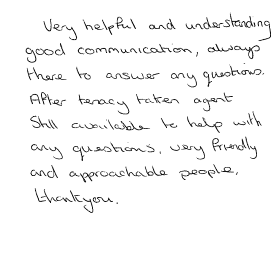 Very helpful and understanding
good communication, always
there to answer any questions.
After tenacy taken agent
Still available to help with
any questions, very friendly
and approachable people,
thankyou.